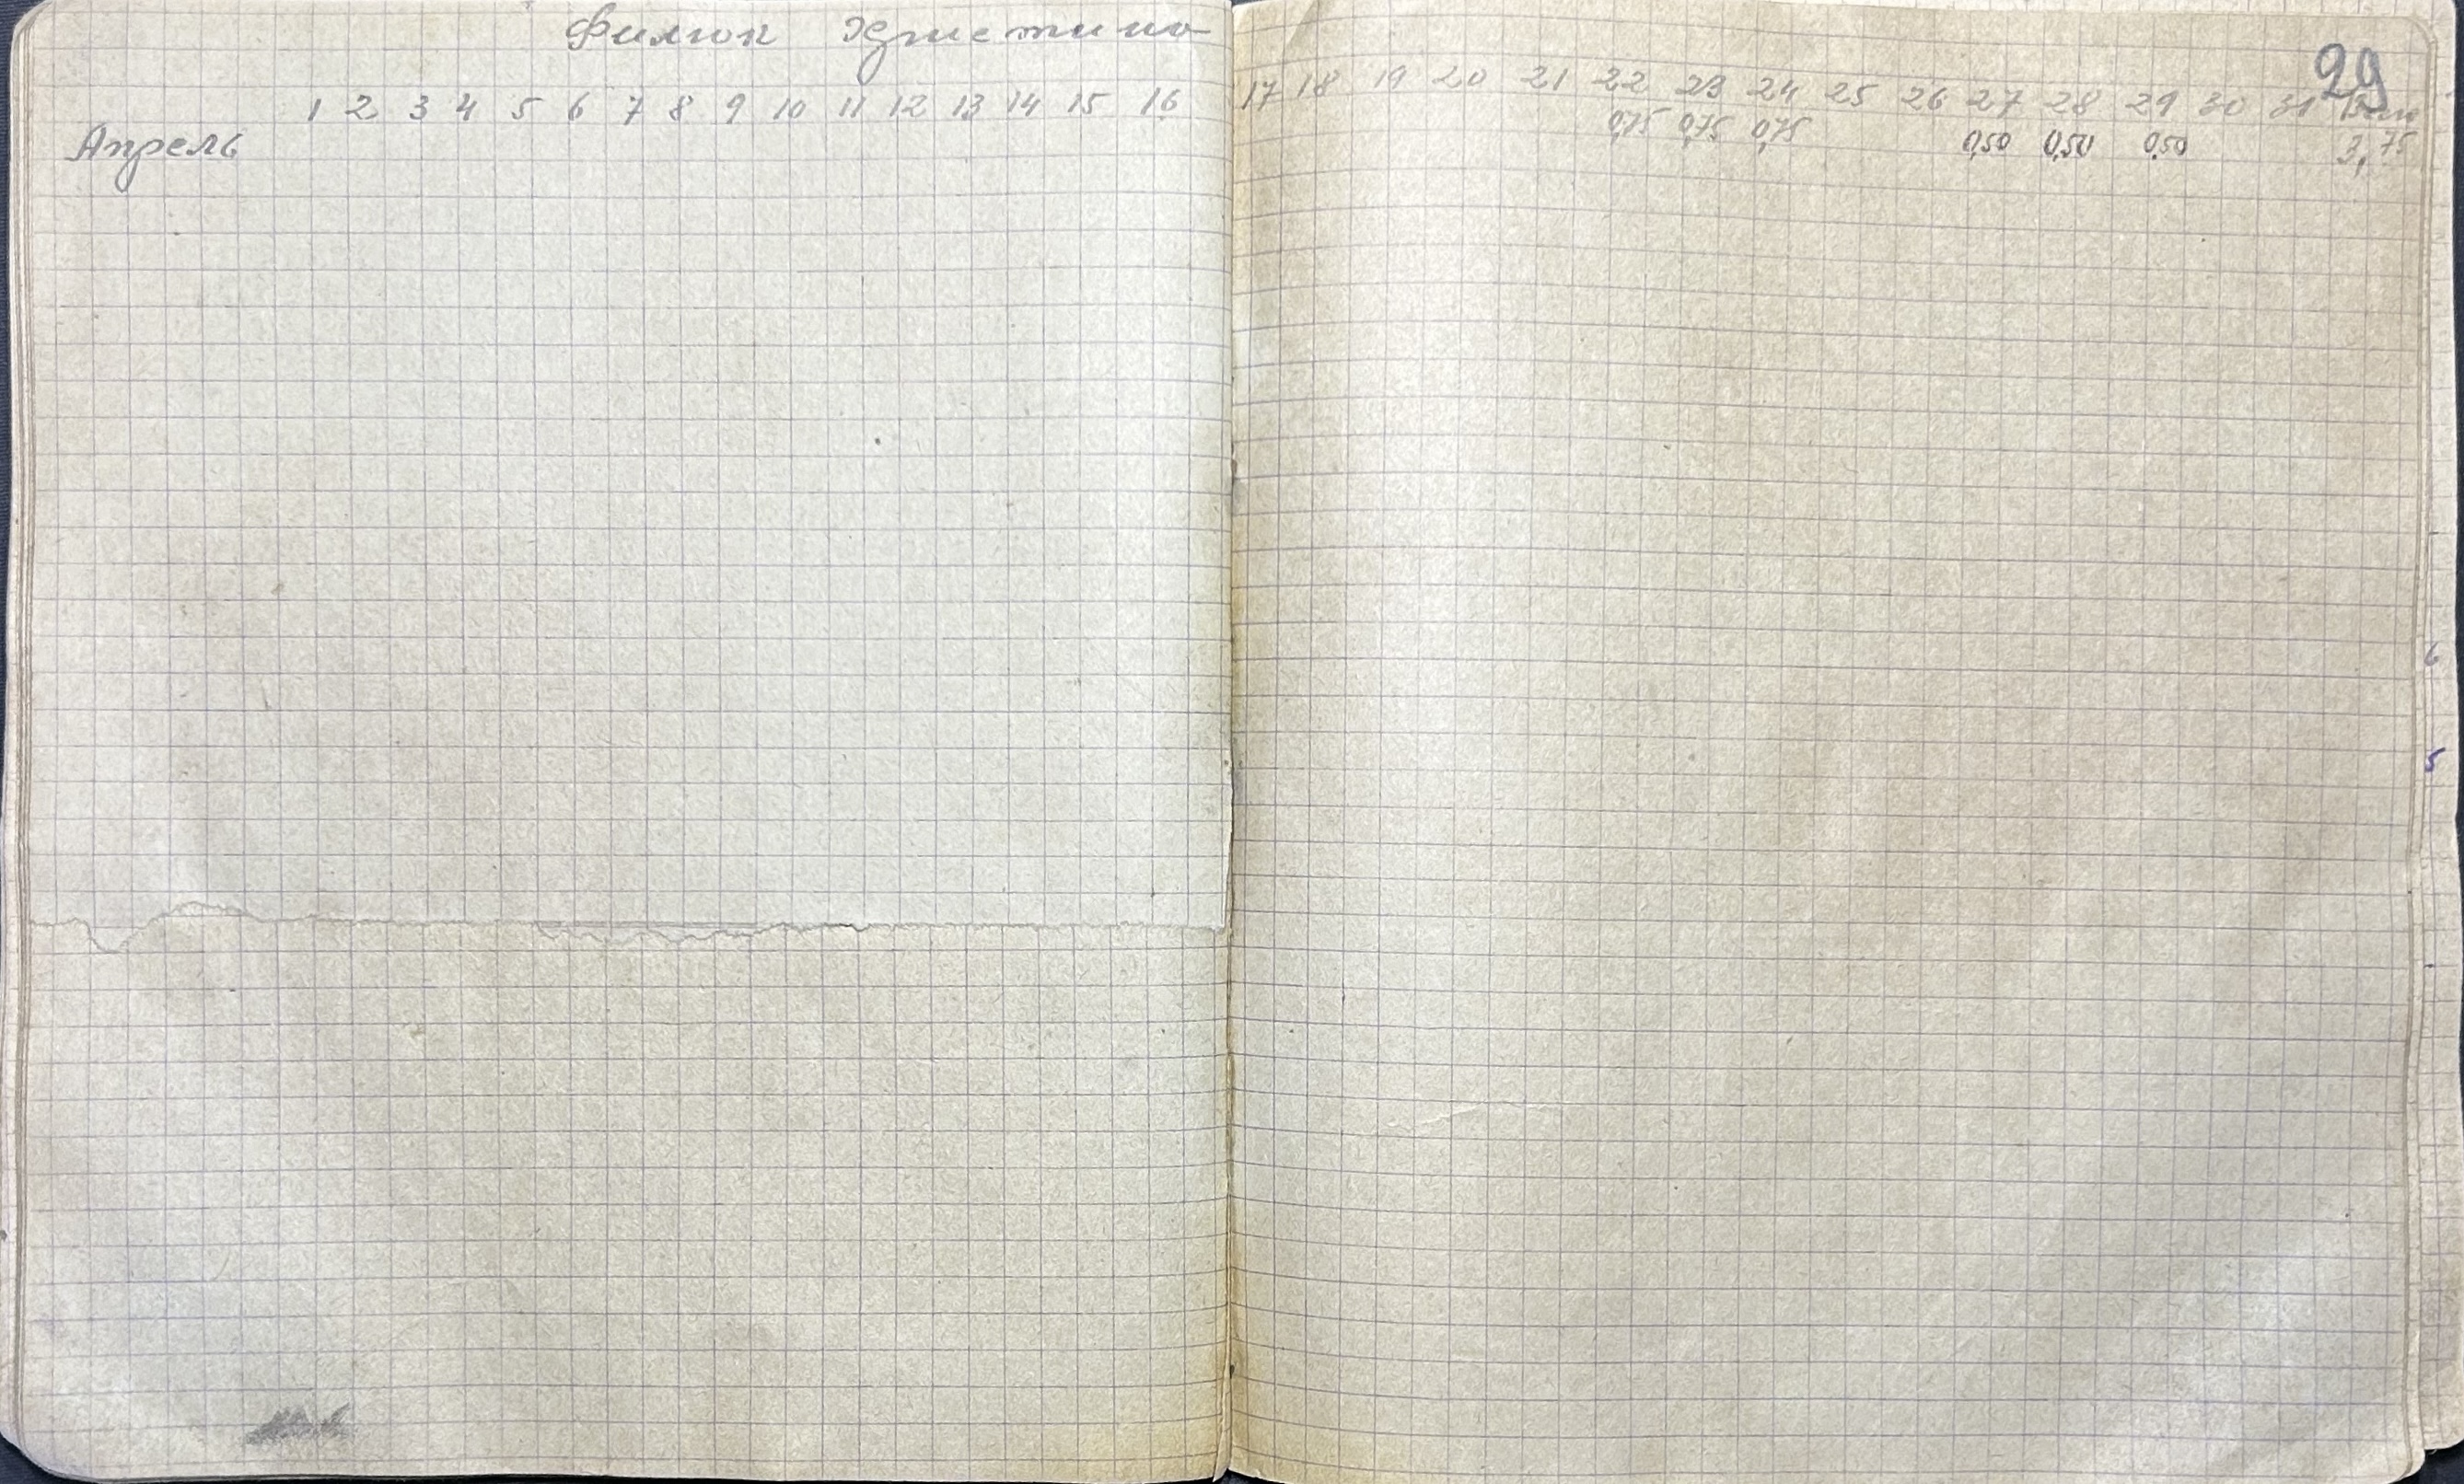 Филюк Юстина
29
1 2 3 4 5 6 7 8 9 10 11 12 13 14 15 16 17 18 19 20 21 22 23 24 25 26 27 28 29 30 31
Апрель 0,75 0,75 0,75 0,50 0,50 0,50 3,75
6
5